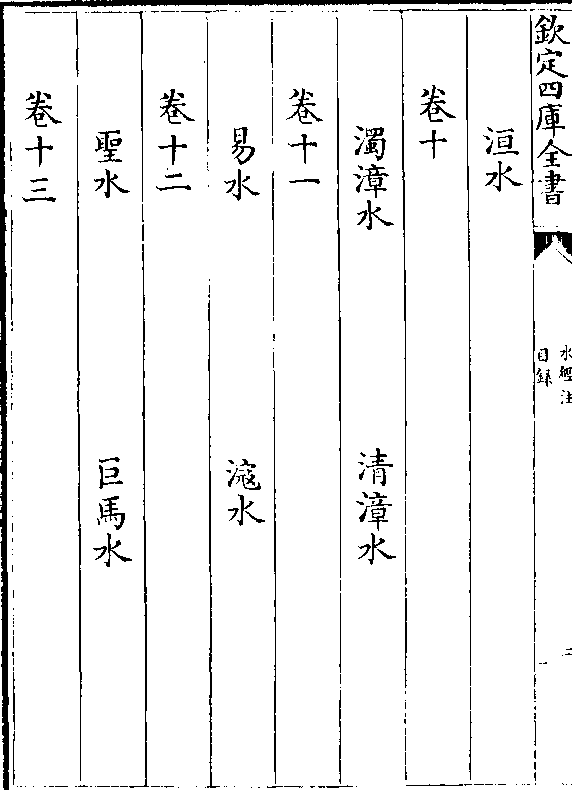 欽定四庫全書
水經注
目録
二
洹水
卷十
濁漳水 清漳水
卷十一
易水 滱水
卷十二
聖水 巨馬水
卷十三